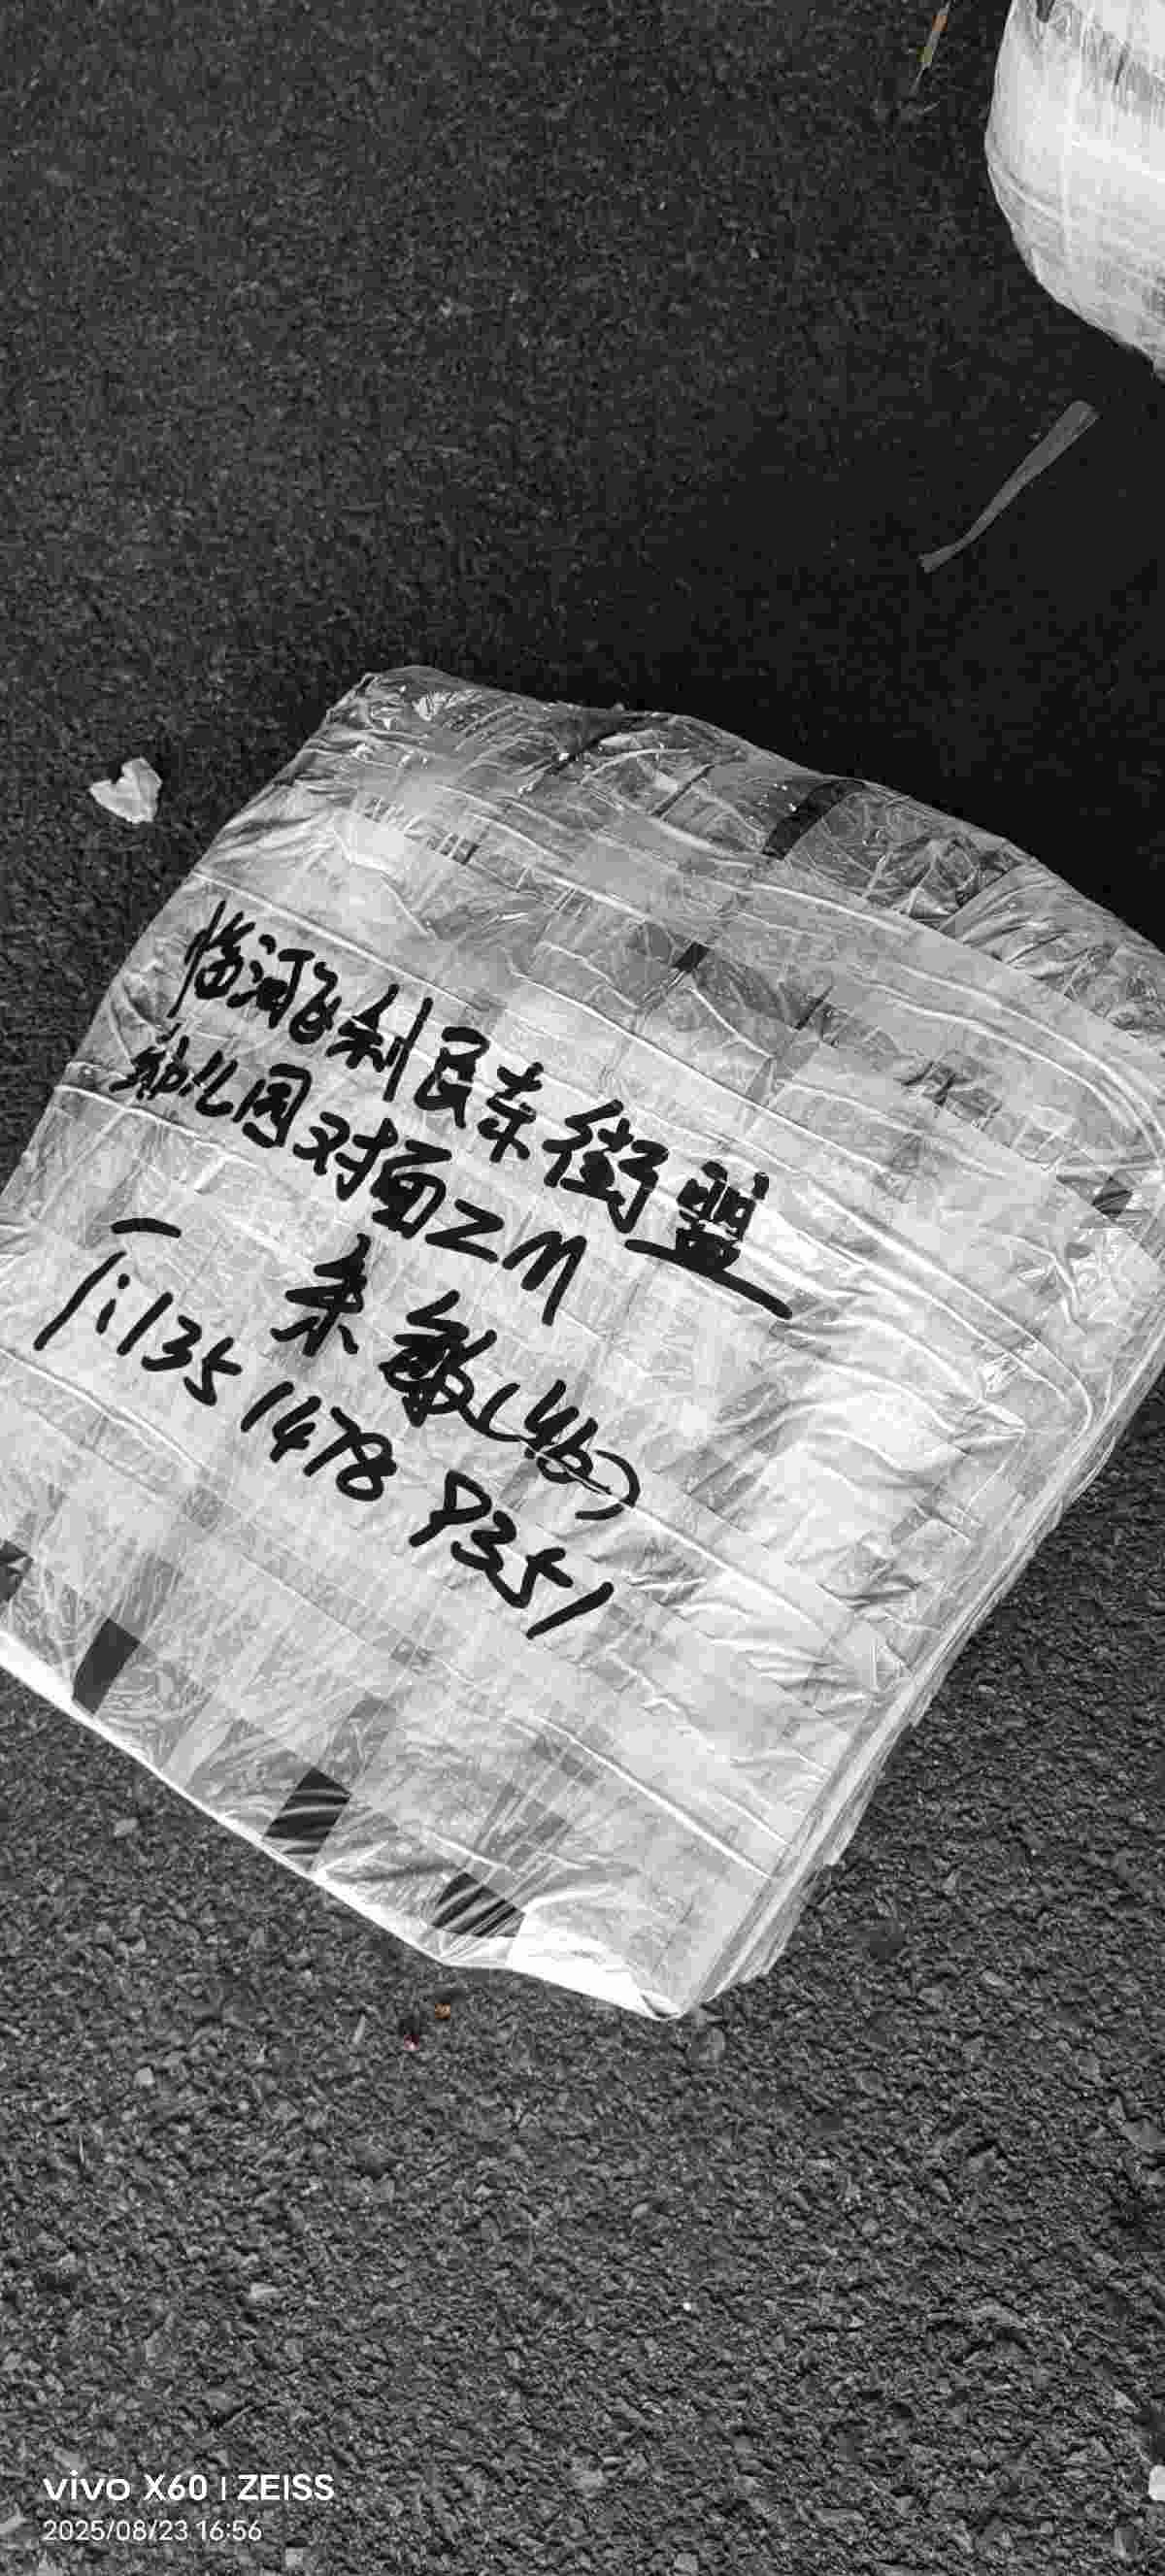 临河区利民东街盟
幼儿园对面ZM
来敏(收)
Ti135 1478 9351
vivo X60 | ZEISS
2025/08/23 16:56